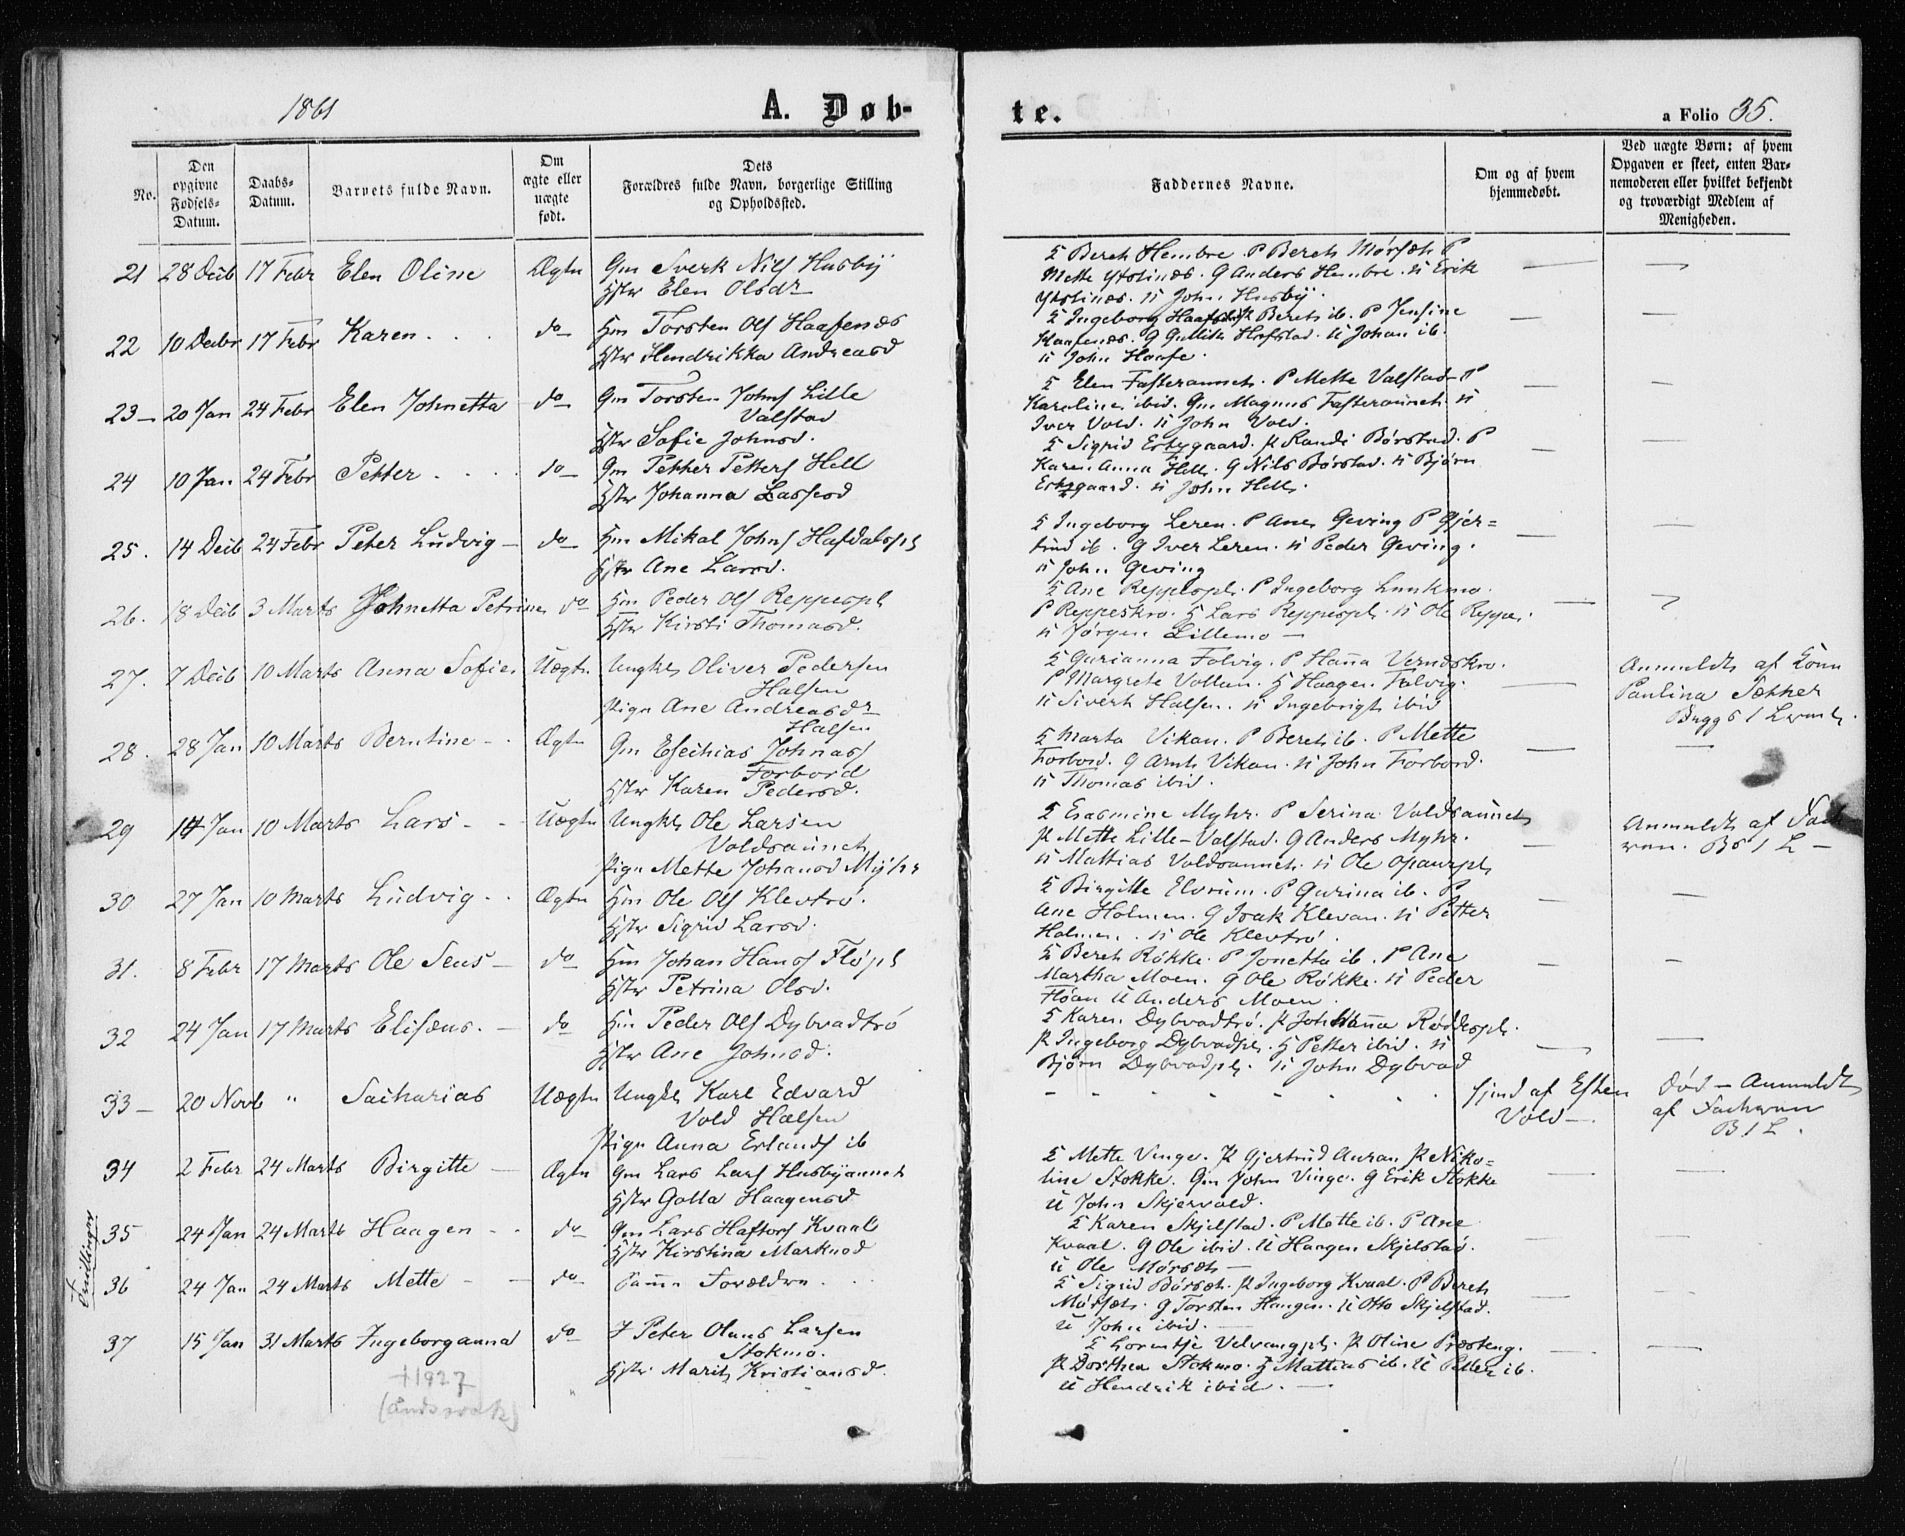 1861
A. Døb-
te.
a Folio 35.
No.
Den opgivne Fødsels-Datum.
Daabs-Datum.
Barnets fulde Navn.
Om ægte eller uægte født.
Dets Forældres fulde Navn, borgerlige Stilling og Opholdssted.
Faddernes Navne.
Om og af hvem hjemmedøbt.
Ved uægte Børn: af hvem Opgaven er skeet, enten Barnemoderen eller hvilket bekjendt og troværdigt Medlem af Menigheden.
21 28 Decb 17 Febr Elen Oline Ægte Gm Sverk Nils Husby
Hstr Elen Olsdr
K Bereth Hembre. P Bereth Mørsæth P
Mette Ystines. G Anders Hembre. U Erik
Ystines. U John Husby.
22 10 Decbr 17 Febr Karen do Hm Torsten Ols Haafenæs
Hstr Hendrikka Andreasd
Beret ib. P Jensine
Haafenæs. G Hofstad. U Johan ib.
U John Haafe.
23 20 Jan 24 Febr Elen Johnetta do Gm Torsten Johns Lille
Valstad
Hstr Sofie Johnsd.
K Elen Fasteraunet. P Mette Valstad P
Karoline ibid. Gm Magnus Fasteraunet. U
Iver Vold. U John Vold.
24 10 Jan 24 Febr Petter do Gm Petter Petters Hell
Hstr Johanna Lassesd
K Sigrid Ertsgaard. P Randi Børstad. P
Karen Anna Hell. G Nils Børstad. U Bjørn
Ertsgaard. U John Hell.
25. 14 Decb 24 Febr Peter Ludvig do Hm Mikal Johns Hafdalspl
Hstr Ane Larsd.
K Ingeborg Leren. P Ane Geving P Gjer=
trud ib. G Iver Leren. U Peder Geving.
U John Geving
26. 18 Decb 3 Marts Johnetta Petrine do Hm Peder Ols Reppespl
Hstr Kirsti Thomasd.
K Ane Reppespl. P Ingeborg
P Reppeskro. H Lars Reppespl. U Ole Reppe.
U Jørgen Lillemo
27. 7 Decb 10 Marts Anna Sofie Uægte Ungkl Oliver Pedersen
Halsen
Pige Ane Andreasdr
Halsen
K Gurianna Folvig. P Hanna Vernæskro.
P Margrete Vollan. H Haagen Folvig.
U Sivert Halsen. U Ingebrigt ibid
Anmeldt af
Paulina
28. 28 Jan 10 Marts Berntine Ægte Gm Esechias Johnas
Forbord
Hstr Karen Pedersd.
K Marta Vikan. P Beret ib. P Mette
Forbord. G Arnt Vikan. U John Forbord.
U Thomas ibid.
29 14 Jan 10 Marts Lars Uægte Ungkl Ole Larsen
Voldsaunet
Pige Mette Johansd Myhr
K Erasmine Myhr. P Serina Voldsaunet
P Mette Lille-Valstad. G Anders Myhr.
U Mattias Voldsaunet. U Ole
Anmeldt af
30 27 Jan 10 Marts Ludvig Ægte Hm Ole Ols Klevtrø.
Hstr Sigrid Larsd.
K Birgitte Elvrum. P Gurina ib. P
Ane Holmen. G Isak Klevan. U Petter
Holmen. U Ole Klevtrø.
31. 8 Febr 17 Marts Ole Sens do Hm Johan Hans Fløpl
Hstr Petrina Olsd.
K Beret Røkke. P Jonetta ib. P Ane
Martha Moen. G Ole Røkke. U Peder
Fløan U Anders Moen.
32 24 Jan 17 Marts Elisæus do Hm Peder Ols Dybvadtrø
Hstr Ane Johnsd.
K Karen Dybvadtrø. P Johanna Røddespl.
P Ingeborg Dybvadpl. H Petter ibid. U
Bjørn Dybvadpl. U John Dybvad
33 20 Novb " Sacharias Uægte Ungkl Karl Edvard
Vold Halsen
Pige Anna Erlands ib
hjmd af Esten
Vold
Død — Anmeldt
af
34 2 Febr 24 Marts Birgitte Ægte Gm Lars Lars Husbyaunet
Hstr Golla Haagensd
K Mette Vinge. P Gjertrud Auran P Niko=
line Stokke. Gm John Vinge. G Erik Stokke
U John Skjervold.
Tvillinger
35 24 Jan 24 Marts Haagen do Gm Lars Haftors Kvaal
Hstr Kirstina Marknsd
K Karen Skjelstad. P Mette ib. P Ane
Kvaal. G Ole ibid. U Haagen Skjelstad.
U Ole Mørsæth
36 24 Jan 24 Marts Mette do Samme Forældre
K Sigrid Børsæth. P Ingeborg Kvaal. P Bereth
Mørsæth. G Torsten Haugen. U Otto Skjelstad.
U John ibid.
37 15 Jan 31 Marts Ingeborganna do I Peter Olaus Larsen
Stokmo.
Hstr Marit Kristiansd.
K Lorntje Velvangpl. P Oline Præsteng.
P Dorthea Stokmo. H Mattias ib. U Petter ib.
U Hendrik ibid.
+1927
(Åndsvak)